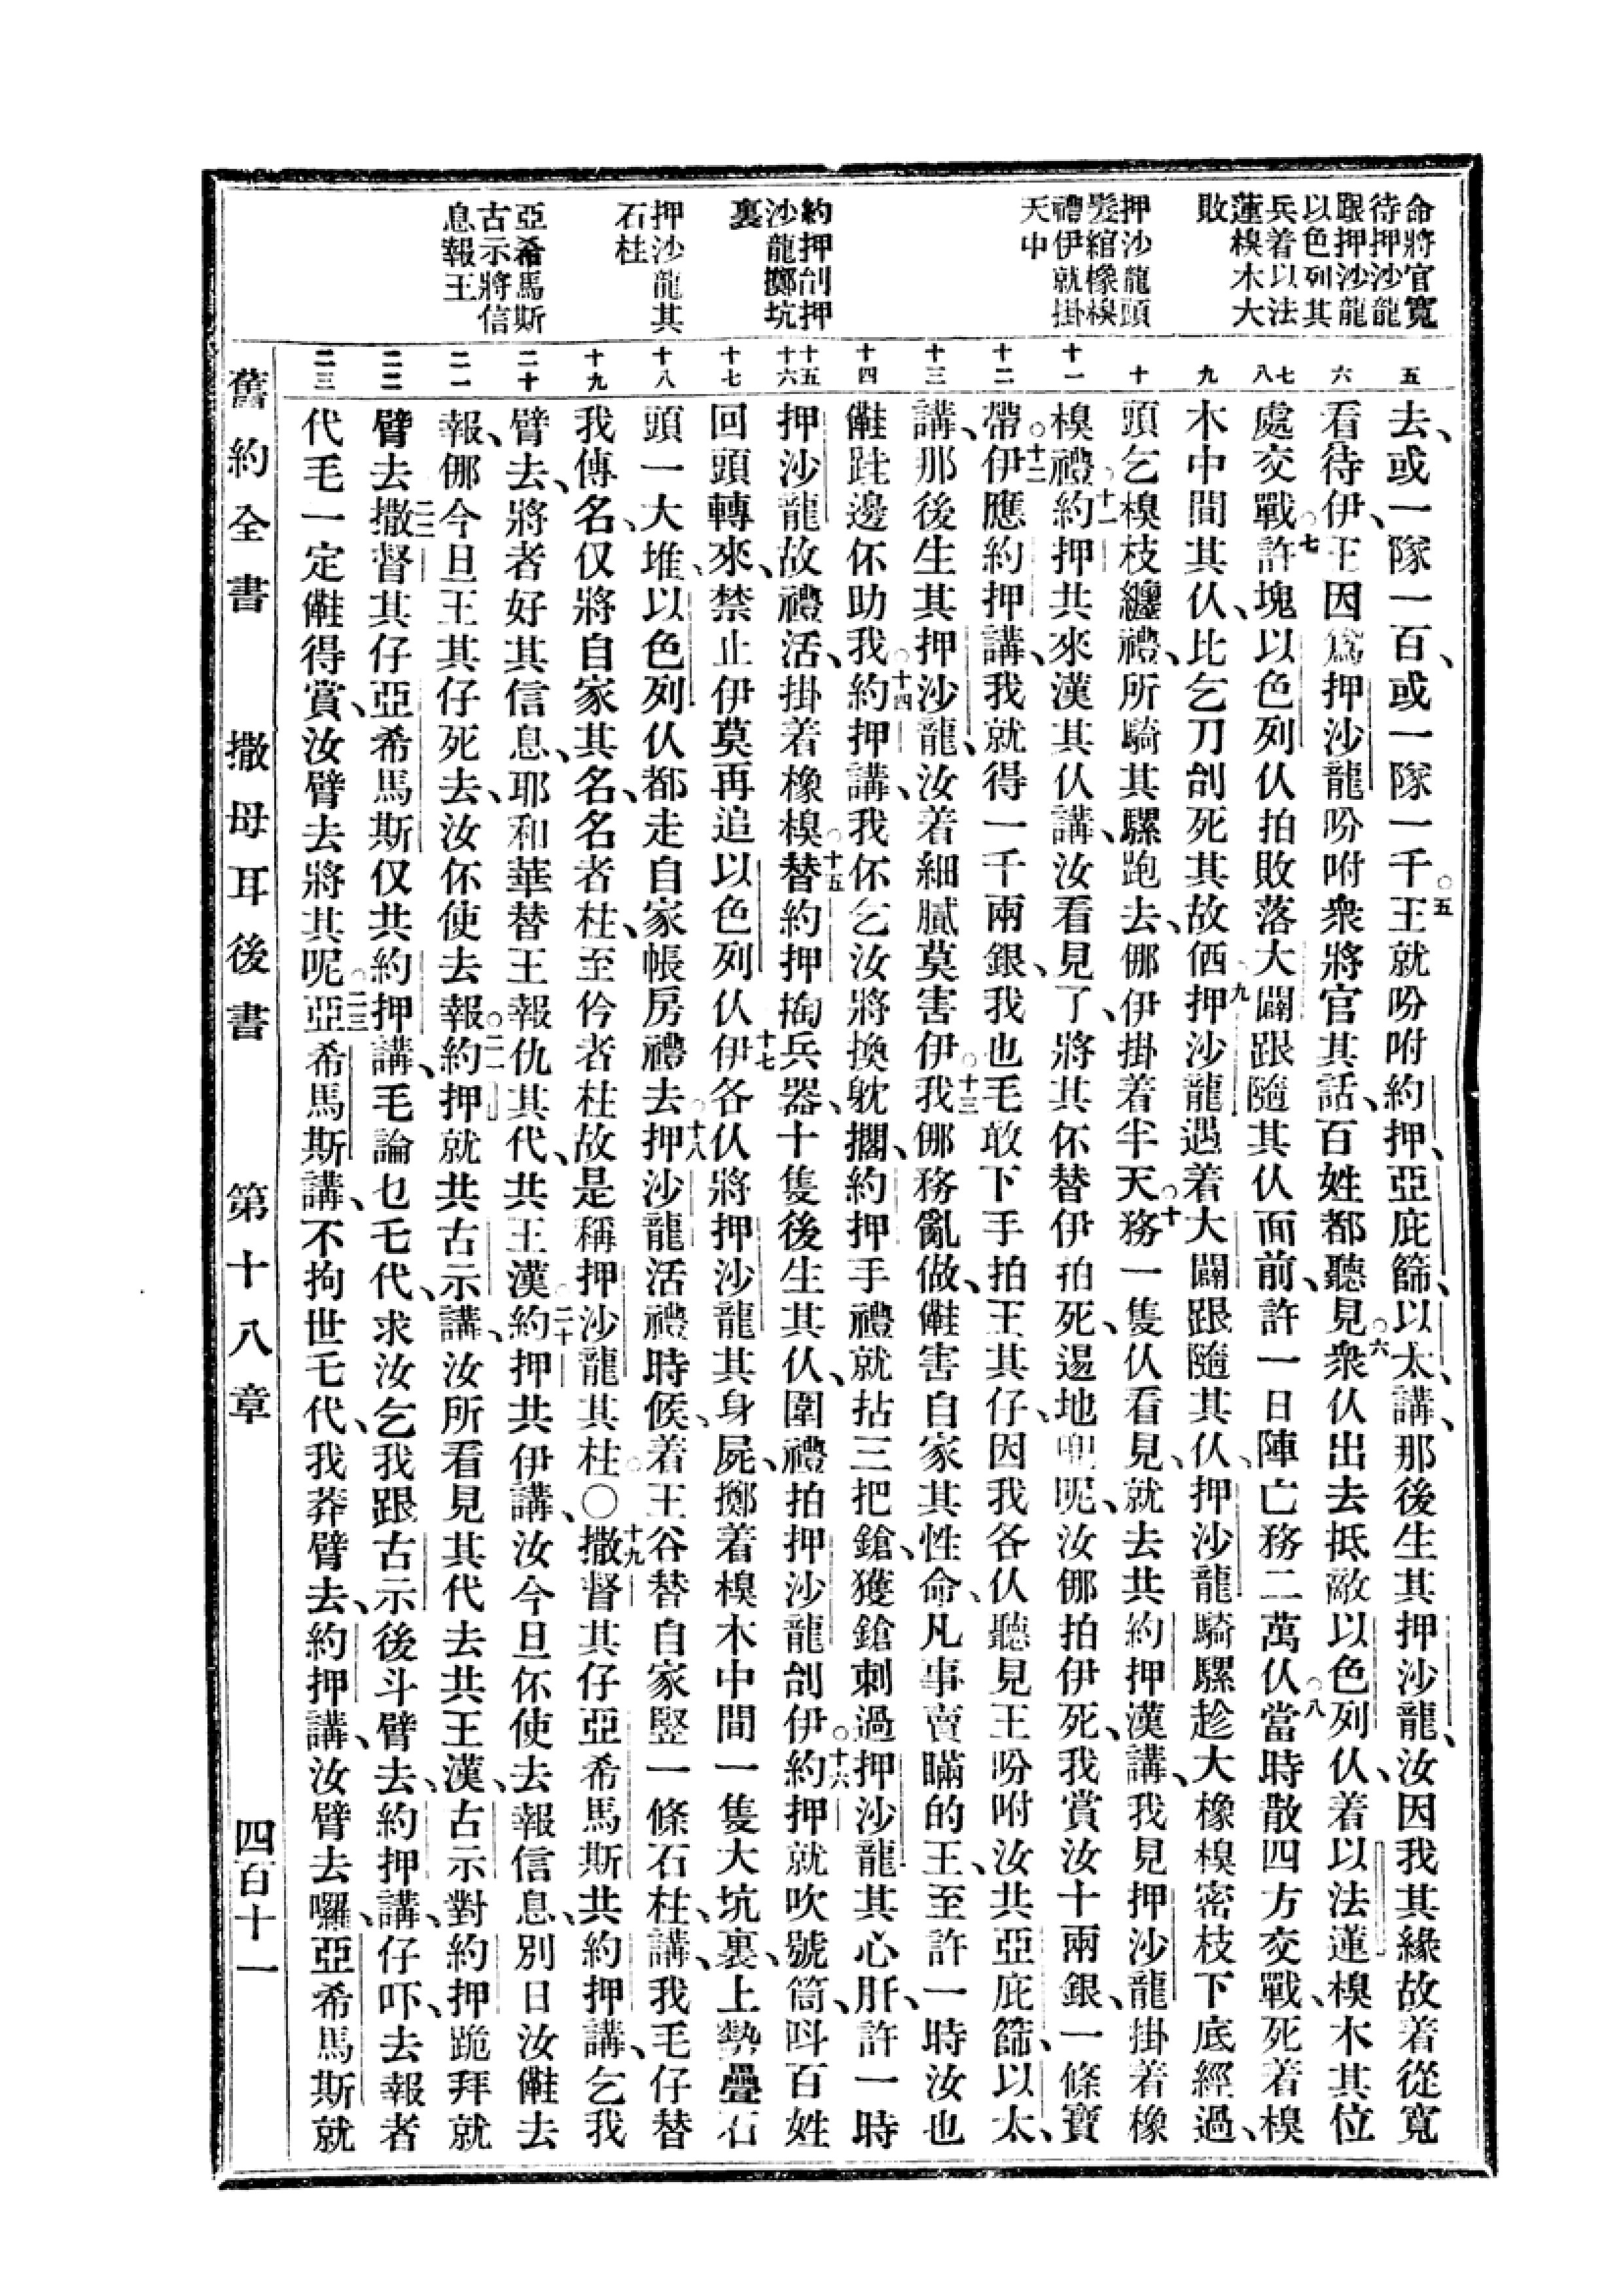 命將官寬
待押沙龍
跟押沙龍
以色列其
兵着以法
蓮模木大
敗
押沙龍頭
髮綰橡模
禮伊就掛
天中
約押刣押
沙龍擲坑
裏
押沙龍其
石柱
亞希馬斯
古示將信
息報王
五
六
七
八
九
十
十一
十二
十三
十四
十五
十六
十七
十八
十九
二十
二一
二二
二三
去、或一隊一百、或一隊一千○五王就吩咐約押、亞庇篩、以太、講、那後生其押沙龍、汝因我其緣故着從寬
看待伊、王因爲押沙龍吩咐衆將官其話、百姓都聽見○六衆仈出去抵敵以色列仈、着以法蓮模木其位
處交戰○七許塊、以色列仈拍敗落大闢跟隨其仈面前、許一日陣亡務二萬仈○八當時散四方交戰、死着模
木中間其仈比乞刀刣死其故、伓○九押沙龍遇着大闢跟隨其仈、押沙龍騎騾趁大橡模密枝下底經過、
頭乞模枝纏禮、所騎其騾跑去、㑚伊掛着半天○十務一隻仈看見、就去共約押漢講、我見押沙龍掛着橡
模禮○十一約押共來漢其仈講、汝看見了、將其伓替伊拍死、逿地兜呢、汝㑚拍伊死、我賞汝十兩銀、一條寶
帶○十二伊應約押講、我就得一千兩銀、我也毛敢下手拍王其仔、因我各仈聽見王吩咐汝共亞庇篩、以太、
講、那後生其押沙龍、汝着細膩莫害伊○十三我㑚務亂做、𣍐害自家其性命、凡事賣瞞的王、至許一時汝也
𣍐跬邊伓助我○十四約押講、我伓乞汝將換躭擱、約押手禮就拈三把鎗、獲鎗刺過押沙龍其心肝、許一時
押沙龍故禮活、掛着橡模○十五替約押掏兵器、十隻後生其仈、圍禮拍押沙龍刣伊○十六約押就吹號筒、呌百姓
回頭轉來、禁止伊莫再追以色列仈○十七伊各仈將押沙龍其身屍、擲着模木中間一隻大坑裏、上勢疊石
頭一大堆、以色列仈都走自家帳房禮去○十八押沙龍活禮時候、着王谷替自家竪一條石柱、講、我毛仔替
我傳名、仅將自家其名、名者柱、至伱者柱故是稱押沙龍其柱○〇十九撒督其仔亞希馬斯共約押講、乞我
臂去、將者好其信息、耶和華替王報仇其代、共王漢○二十約押共伊講、汝今旦伓使去報信息、別日汝𣍐去
報、㑚今旦王其仔死去、汝伓使去報○二一約押就共古示講、汝所看見其代去共王漢、古示對約押跪拜就
臂去○二二撒督其仔亞希馬斯仅共約押講、毛論乜乇代、求汝乞我跟古示後斗臂去、約押講、仔吓、去報者
代毛一定𣍐得賞、汝臂去將其呢○二三亞希馬斯講、不拘世乇代、我莽臂去、約押講、汝臂去囉、亞希馬斯就
舊約全書　撒母耳後書　第十八章　四百十一